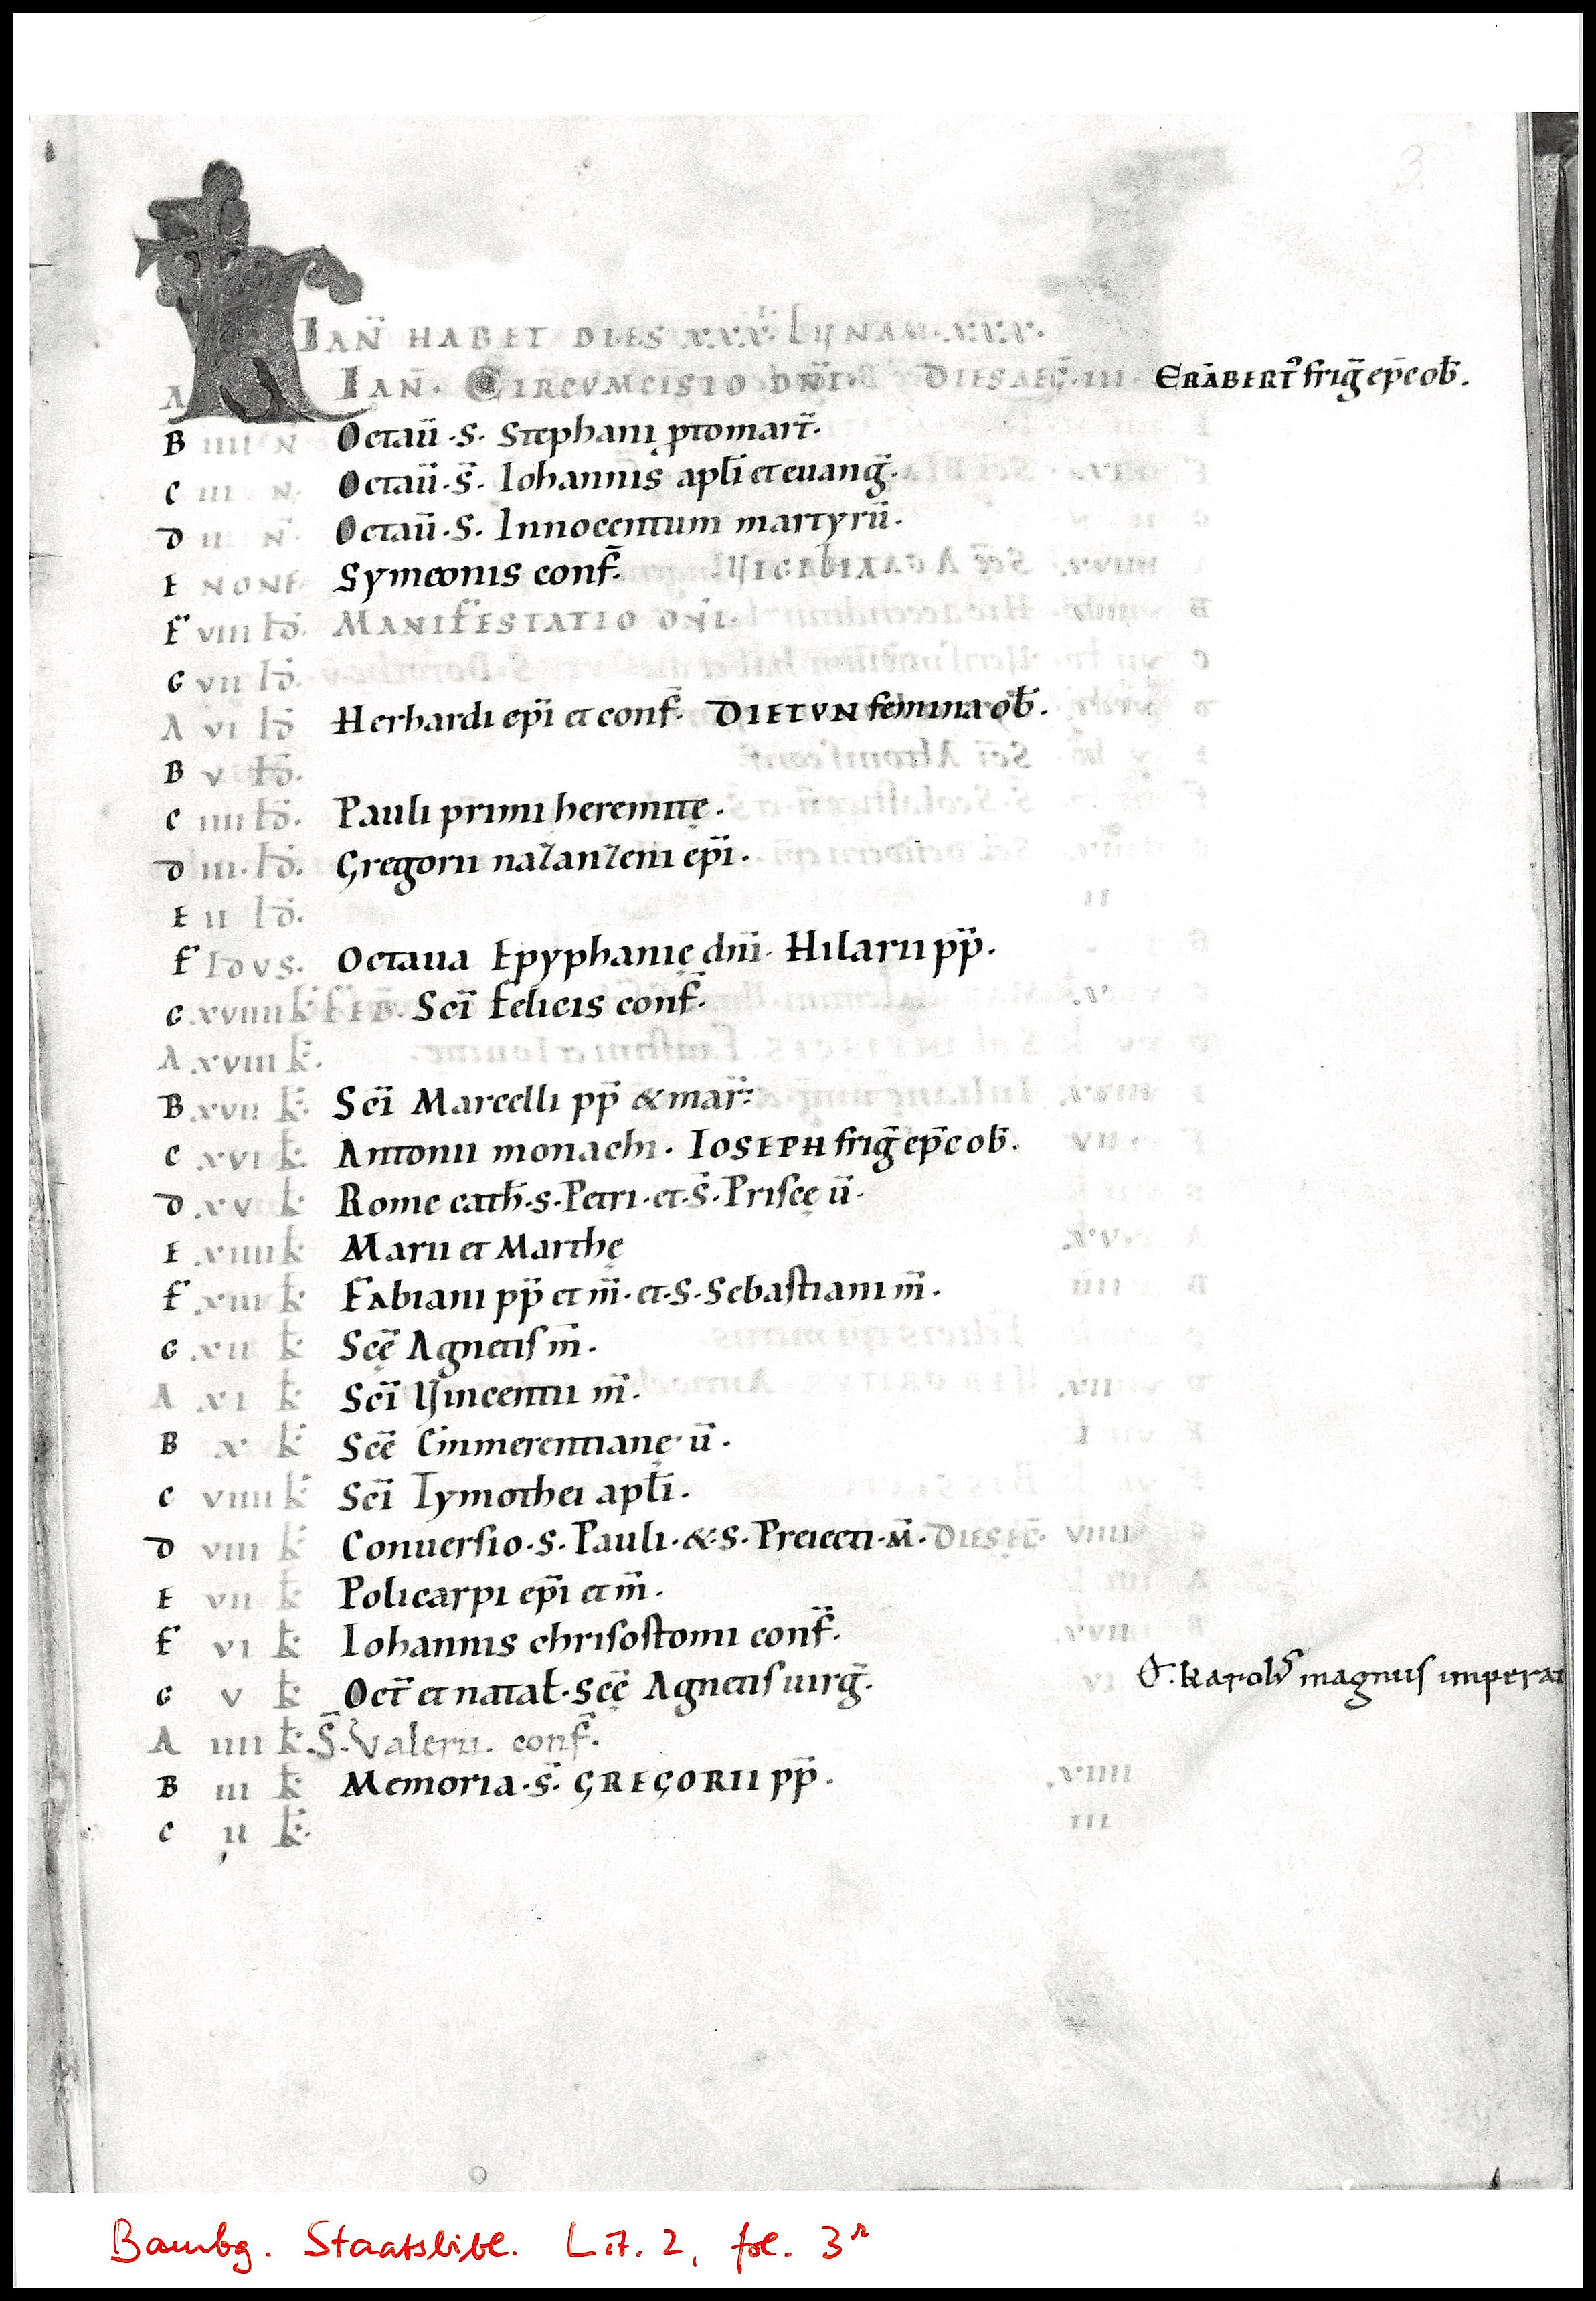 3
K IAN̄ HABET DIES XXXI LUNAM XXX.
A IAN̄. CIRCVMCISIO DN̄I. DIES AEḠ. III ERABERTꝰ frig̃ ep̄c ob̄.
B IIII N Octau̅ · S · Stephani ꝓtomart̄.
C III N. Octau̅ · S̄ · Iohannis apl̄i et euang̃.
D II N̄. Octau̅ · S · Innocentum martyrū.
E NONE Symeonis conf̄.
F VIII ID. MANIFESTATIO DN̄I.
G VII ID.
A VI ID Herhardi ep̄i et conf̄. DIETVN femina ob̄.
B V ID.
C IIII ID. Pauli primi heremitę.
D III. ID. Gregorii nazanzeni ep̄i.
E II ID.
F IDVS. Octaua Epyphanię dn̄i. Hilarii pp̄.
G .XVIIII k̄ FEB̄. Sc̄i Felicis conf̄.
A .XVIII k̄.
B .XVII k̄. Sc̄i Marcelli pp̄ & mar̄.
C .XVI k̄. Antonii monachi. IOSEPH frig̃ ep̄c ob̄.
D .XV k̄ Rome cath̄ · s · Petri · et · S̄ · Priscę ū.
E .XIIII k̄ Marii et Marthę
F .XIII k̄ Fabiani pp̄ et m̄ · et · S · Sebastiani m̄.
G .XII k̄ Sc̄ę Agnetis m̄.
A .XI k̄ Sc̄i Vincentii m̄.
B X k̄ Sc̄ę Emmerentianę ū.
C VIIII k̄ Sc̄i Tymothei apl̄i.
D VIII k̄ Conuersio · S · Pauli · & · S · Preiecti · M̄ · DIES EC̄. VIIII
E VII k̄ Policarpi ep̄i et m̄.
F VI k̄ Iohannis chrisostomi conf̄.
G V k̄ Oct̄ et natal̄ · Sc̄ę Agnetis uirg̃. O. karolꝰ magnus imperat
A IIII k̄. S̄. Valerii. conf̄.
B III k̄ Memoria · S̄ · GREGORII pp̄.
C II k̄.
Bambg. Staatsbibl. Lit. 2, fol. 3ʳ